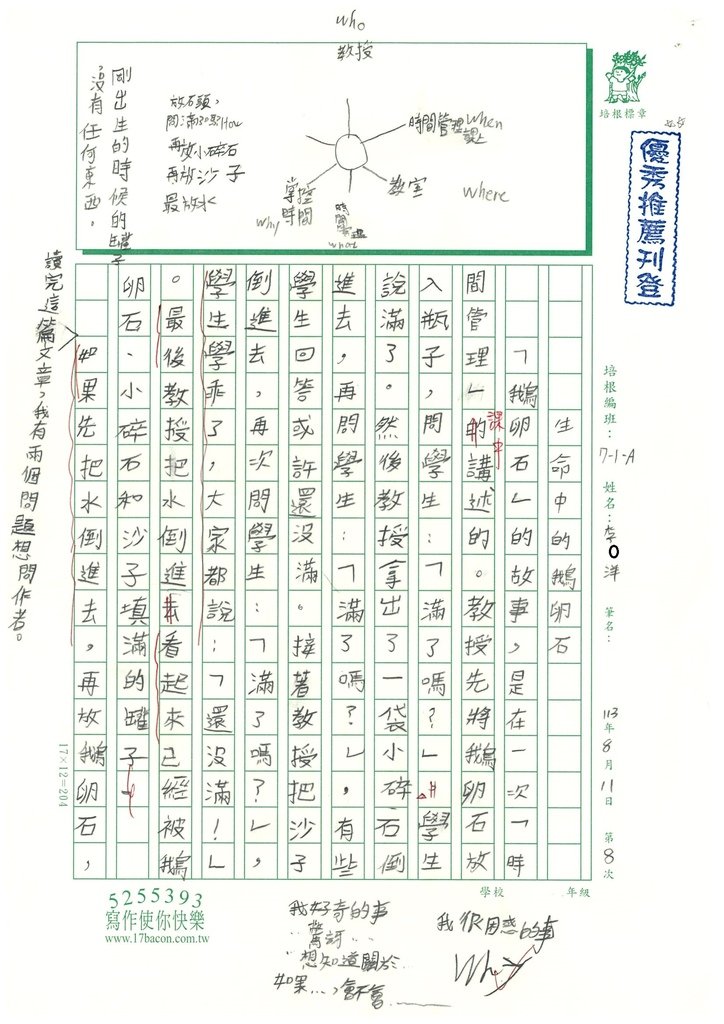 who
教授
時間管理 when
課上
教室
where
時間管理
what
掌控
時間
why
放石頭，
問滿了嗎 How
再放小碎石
再放沙子
最放水
剛出生的時候的罐子
沒有任何東西。
培根標章
優秀推薦刊登
培根編班：7-1-A 姓名：李O洋 筆名： 113年8月11日 第8次
生命中的鵝卵石
「鵝卵石」的故事，是在一次「時
間管理」的講述的。教授先將鵝卵石放
課中
入瓶子，問學生「滿了嗎？」學生
說滿了。然後教授拿出了一袋小碎石倒
進去，再問學生：「滿了嗎？」，有些
學生回答或許還沒滿。接著教授把沙子
倒進去，再次問學生：「滿了嗎？」，
學生學乖了，大家都說：「還沒滿！」
。最後教授把水倒進看起來已經被鵝
卵石、小碎石和沙子填滿的罐子
如果先把水倒進去，再放鵝卵石，
讀完這篇文章，我有兩個問題想問作者。
17×12=204
學校 年級
5255393
寫作使你快樂
www.17bacon.com.tw
我好奇的事
‥驚訝‥‥
‥想知道關於‥
如果…，會不會
我很困惑的事
Why